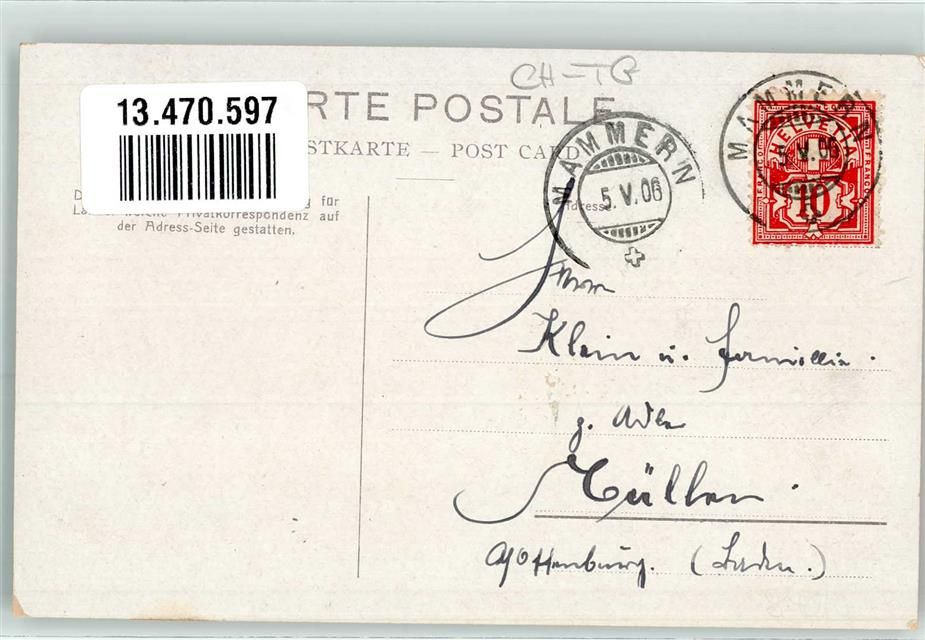 CH-TG
13.470.597
RTE POSTALE
STKARTE — POST CARD
MAMMERN
5.V.06
MAMMERN
V.06
HELVETIA
10
für
Privatkorrespondenz auf
der Adress-Seite gestatten.
Adresse
Herrn
Klein u. Familie.
z. Adler
Müllen.
Offenburg. (Baden.)